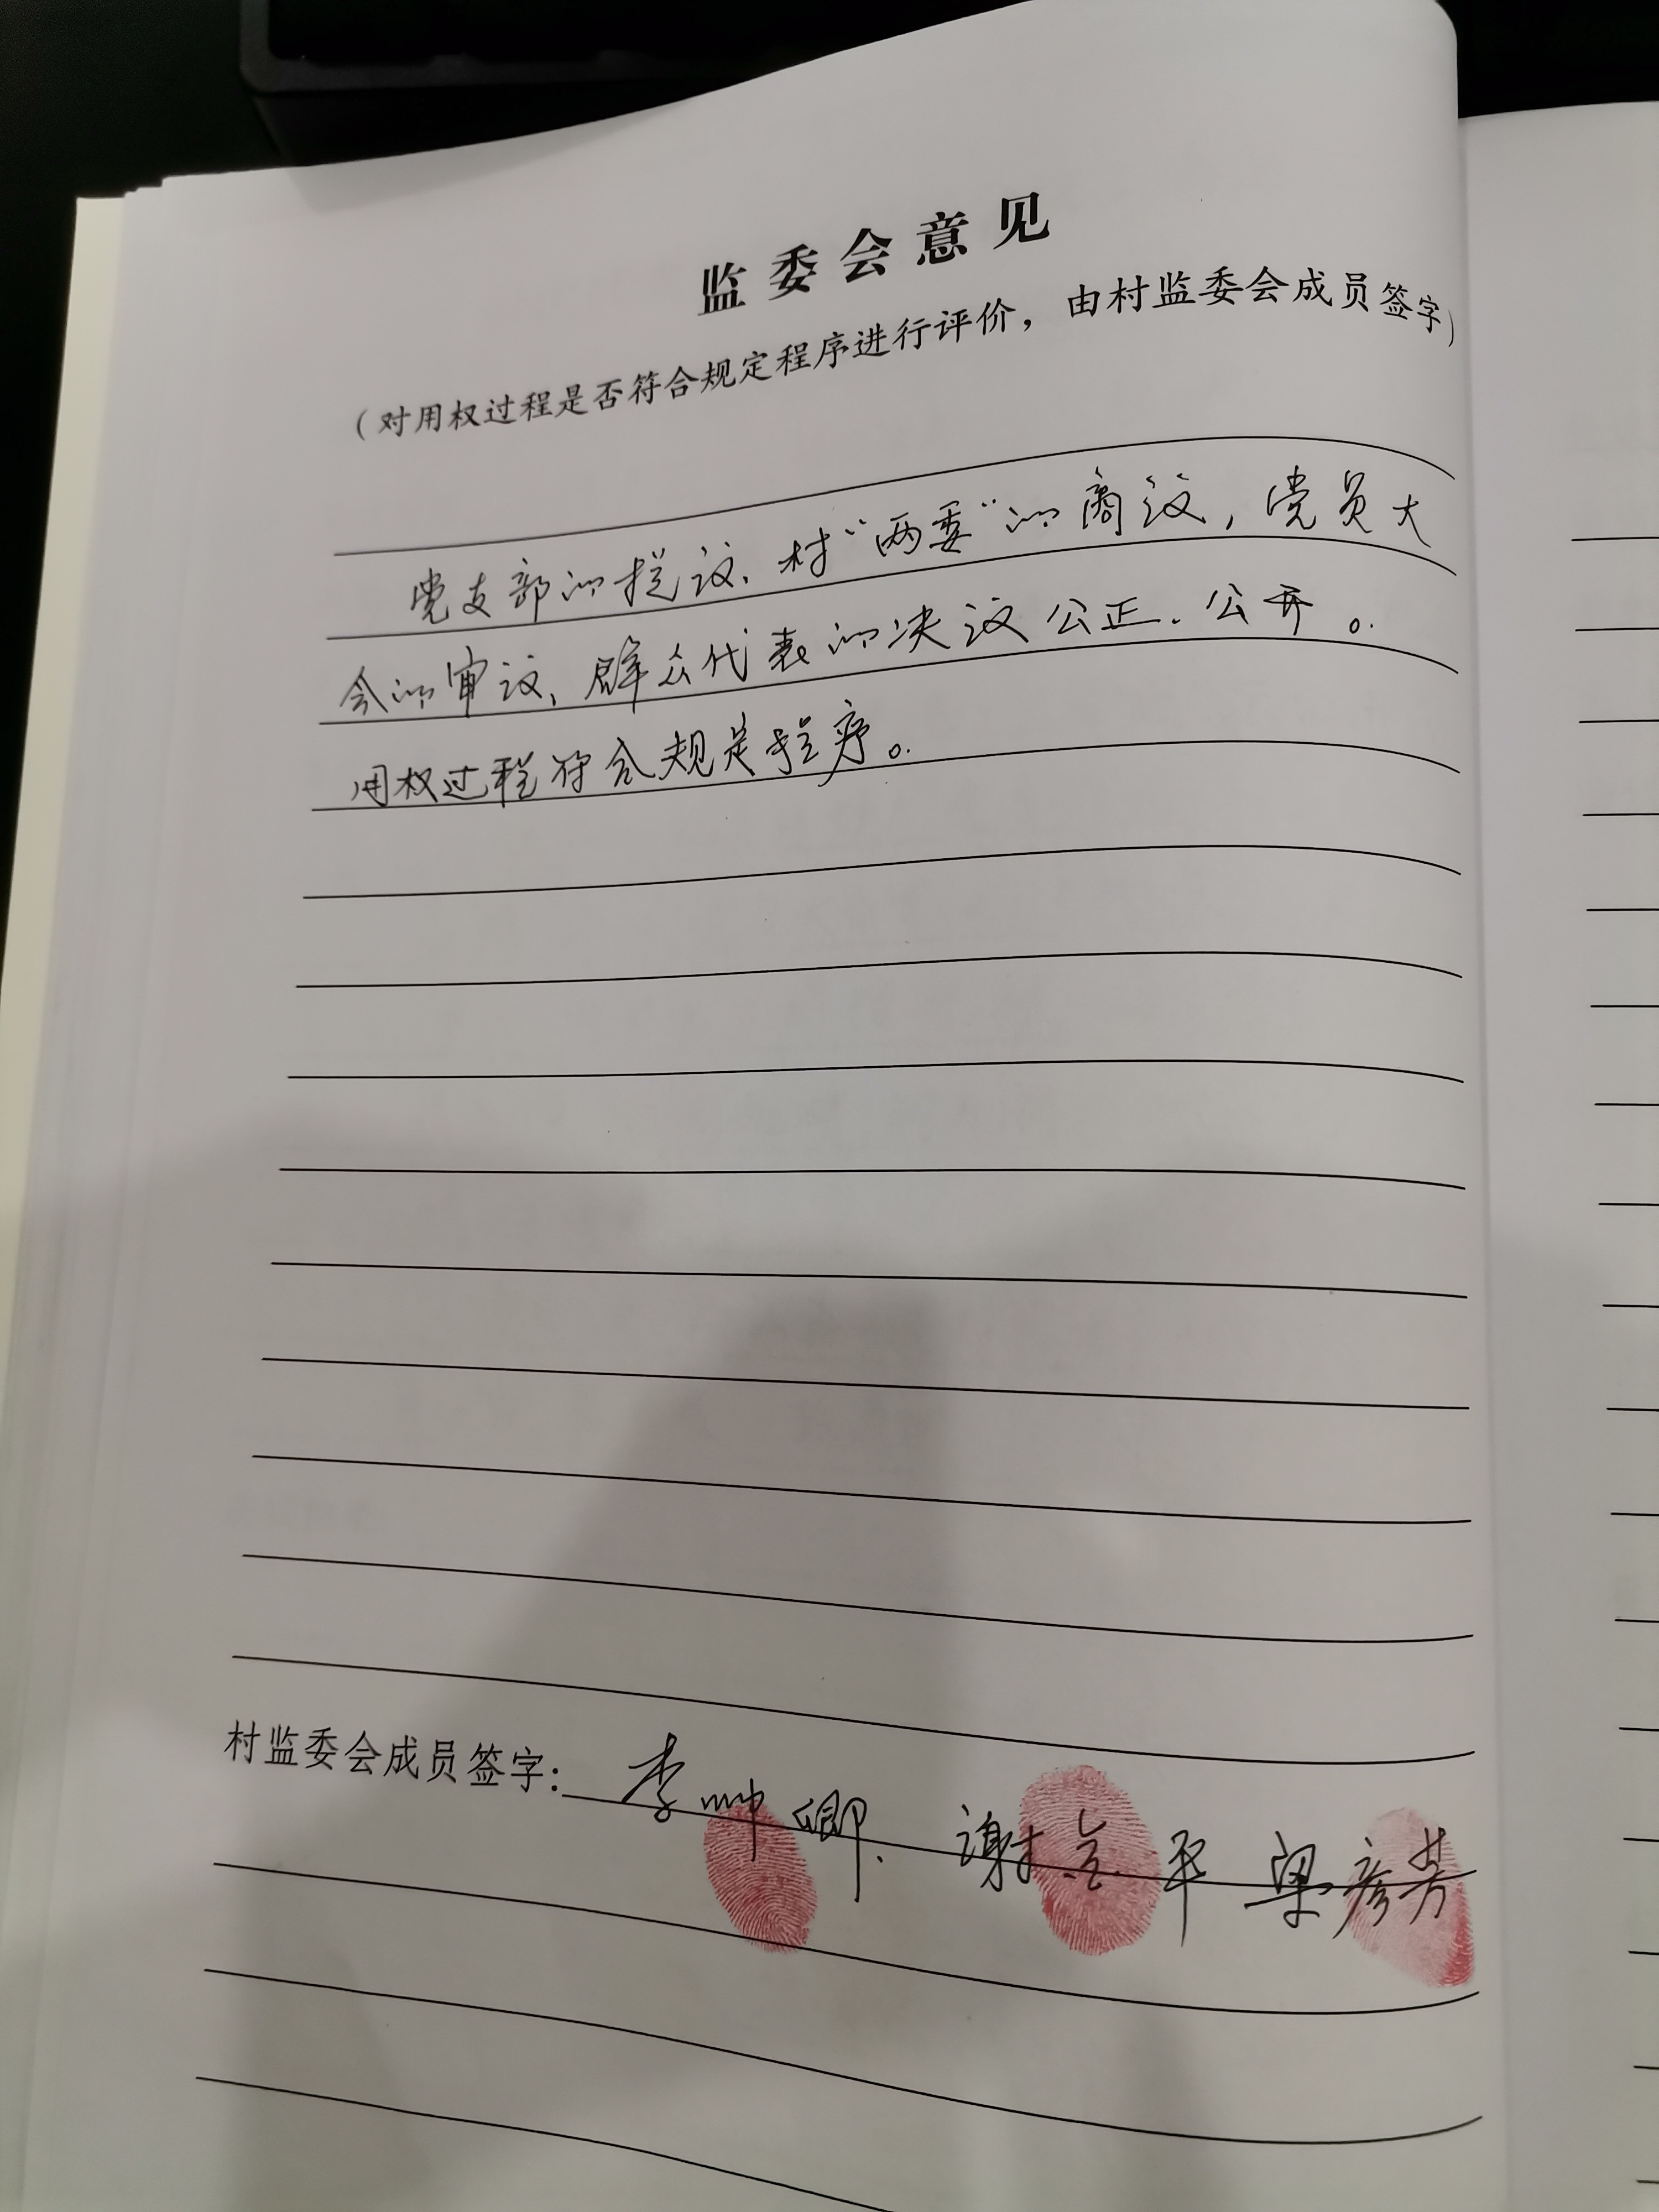 监委会意见
(对用权过程是否符合规定程序进行评价，由村监委会成员签字)
党支部的提议、村“两委”的商议，党员大
会的审议、群众代表的决议公正、公开。
用权过程符合规定程序。
村监委会成员签字: 李 卿 谢 平 梁彦芳